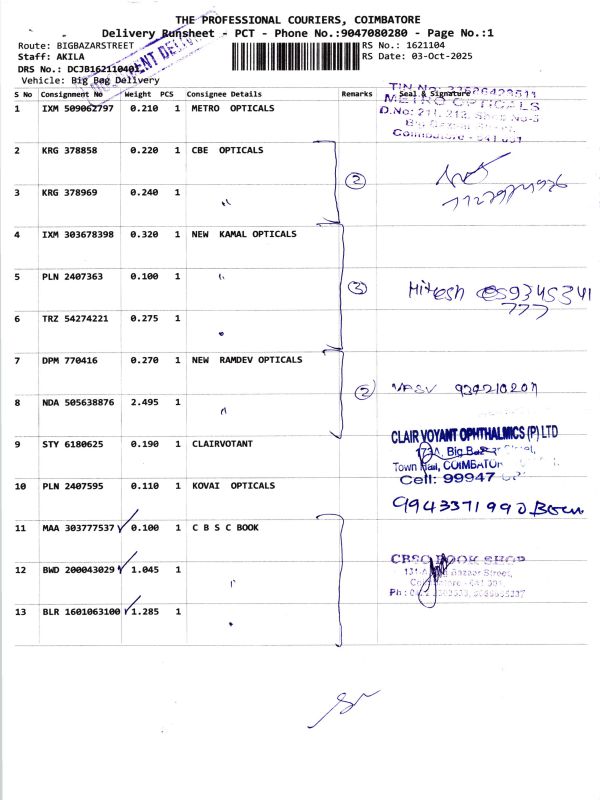 THE PROFESSIONAL COURIERS, COIMBATORE
Delivery Runsheet - PCT - Phone No.:9047080280 - Page No.:1
Route: BIGBAZARSTREET RS No.: 1621104
Staff: AKILA RS Date: 03-Oct-2025
DRS No.: DCJB16211040
Vehicle: Big Bag Delivery
S No Consignment No Weight PCS Consignee Details Remarks Seal & Signature
1 IXM 509062797 0.210 1 METRO OPTICALS
METRO OPTICALS
D.No: 211, 212, Shop No-5
Big Bazaar Street,
Coimbatore - 641 001
2 KRG 378858 0.220 1 CBE OPTICALS
2
3 KRG 378969 0.240 1 〃
4 IXM 303678398 0.320 1 NEW KAMAL OPTICALS
5 PLN 2407363 0.100 1 〃
3 Hitesh 9345341
777
6 TRZ 54274221 0.275 1 〃
7 DPM 770416 0.270 1 NEW RAMDEV OPTICALS
2
8 NDA 505638876 2.495 1 〃
9 STY 6180625 0.190 1 CLAIRVOTANT
CLAIR VOYANT OPHTHALMICS (P) LTD
Big Bazaar Street,
Town Hall, COIMBATOR
Cell: 99947
10 PLN 2407595 0.110 1 KOVAI OPTICALS
9943371990
11 MAA 303777537 ✓ 0.100 1 C B S C BOOK
CBSC BOOK SHOP
Bazaar Street,
12 BWD 200043029 ✓ 1.045 1 〃
13 BLR 1601063100 ✓ 1.285 1 〃